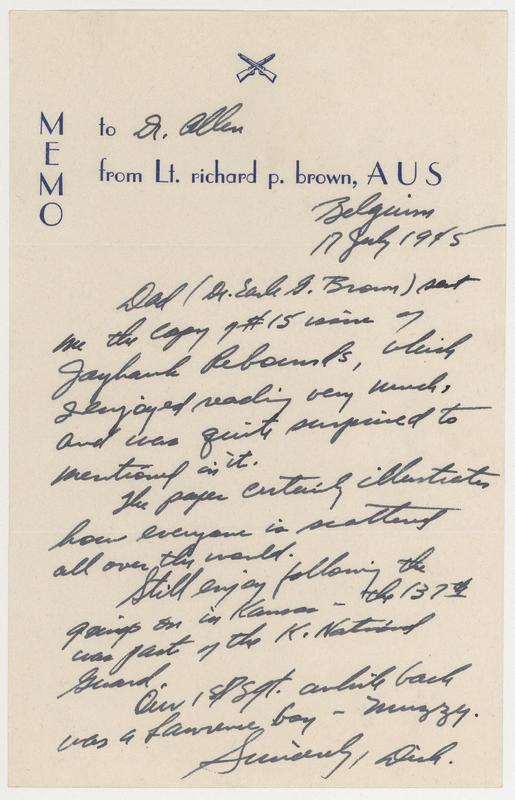 MEMO
to Dr. Allen
from Lt. richard p. brown, AUS
Belgium
17 July 1945
Dad (Dr. Earle G. Brown) sent
me the copy of #15 issue of
Jayhawk Rebounds, which
I enjoyed reading very much,
and was quite surprised to
mentioned in it.
The paper certainly illustrates
how everyone is scattered
all over the world.
Still enjoy following the
goings on in Kansas - the 137th
was part of the K. National
Guard.
Our 1st Sgt. awhile back
was a Lawrence boy - Muzzy.
Sincerely, Dick.